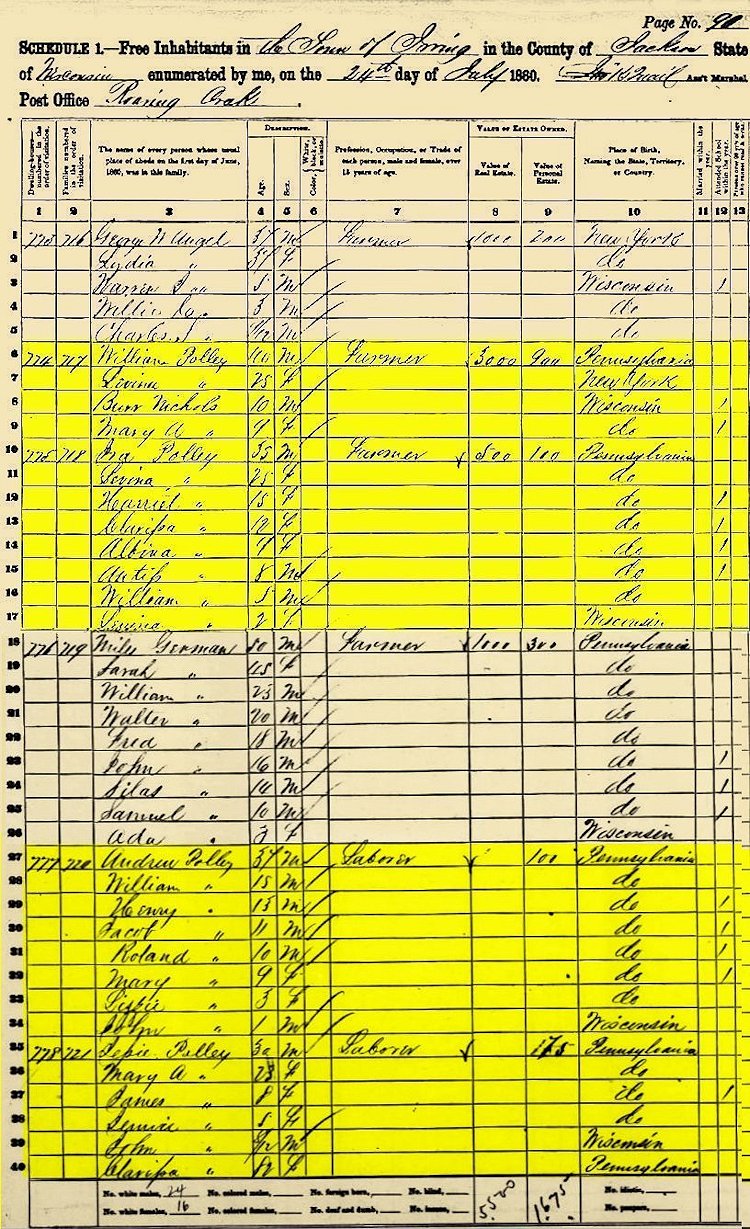 Page No. 90
SCHEDULE 1.—Free Inhabitants in the Town of Irving in the County of Jackson State
of Wisconsin enumerated by me, on the 24th day of July 1860. Ass't Marshal.
Post Office Roaring Creek.
DESCRIPTION. VALUE OF ESTATE OWNED.
Dwelling-houses—numbered in the order of visitation. Families numbered in the order of visitation. The name of every person whose usual place of abode on the first day of June, 1860, was in this family. Age. Sex. Color, White, black, or mulatto. Profession, Occupation, or Trade of each person, male and female, over 15 years of age. Value of Real Estate. Value of Personal Estate. Place of Birth, Naming the State, Territory, or Country. Married within the year. Attended School within the year.
1 2 3 4 5 6 7 8 9 10 11 12 13
1 773 716 George W Angel 37 m Farmer 1000 200 New York
2 Lydia " f do
3 Warren " 5 m Wisconsin 1
4 Willie 3 m do
5 Charles " m do
6 774 717 William Polley 40 m Farmer 3000 900 Pennsylvania
7 Lovina " 25 f New York
8 Burr Nichols 10 m Wisconsin 1
9 Mary A " 9 f do 1
10 775 718 Ira Polley 35 m Farmer 500 100 Pennsylvania
11 Lovina " 25 f do
12 Harriet " 15 f do 1
13 Clarissa " 12 f do 1
14 Albina " 9 f do 1
15 " 8 m do 1
16 William " 5 m do
17 Lovina " 2 f Wisconsin
18 776 719 Miles German 50 m Farmer 1000 300 Pennsylvania
19 Sarah " 45 f do
20 William " 23 m do
21 Walter " 20 m do
22 Fred " 18 m do
23 John " 16 m do 1
24 Silas " 14 m do 1
25 Samuel " 10 m do 1
26 Ada " 3 f Wisconsin
27 777 720 Andrew Polley 37 m Laborer 100 Pennsylvania
28 William " 15 m do
29 Henry " 13 m do 1
30 Jacob " 11 m do 1
31 Roland " 10 m do 1
32 Mary " 9 f do 1
33 " 3 f do
34 John " 1 m Wisconsin
35 778 721 Polley 30 m Laborer 175 Pennsylvania
36 Mary A " 23 f do
37 James " 8 f do 1
38 " 5 f do
39 John " m Wisconsin
40 Clarissa " f Pennsylvania
No. white males, 24 No. colored males, No. foreign born, No. blind, 5500 1675 No. idiotic,
No. white females, 16 No. colored females, No. deaf and dumb, No. insane, No. paupers,